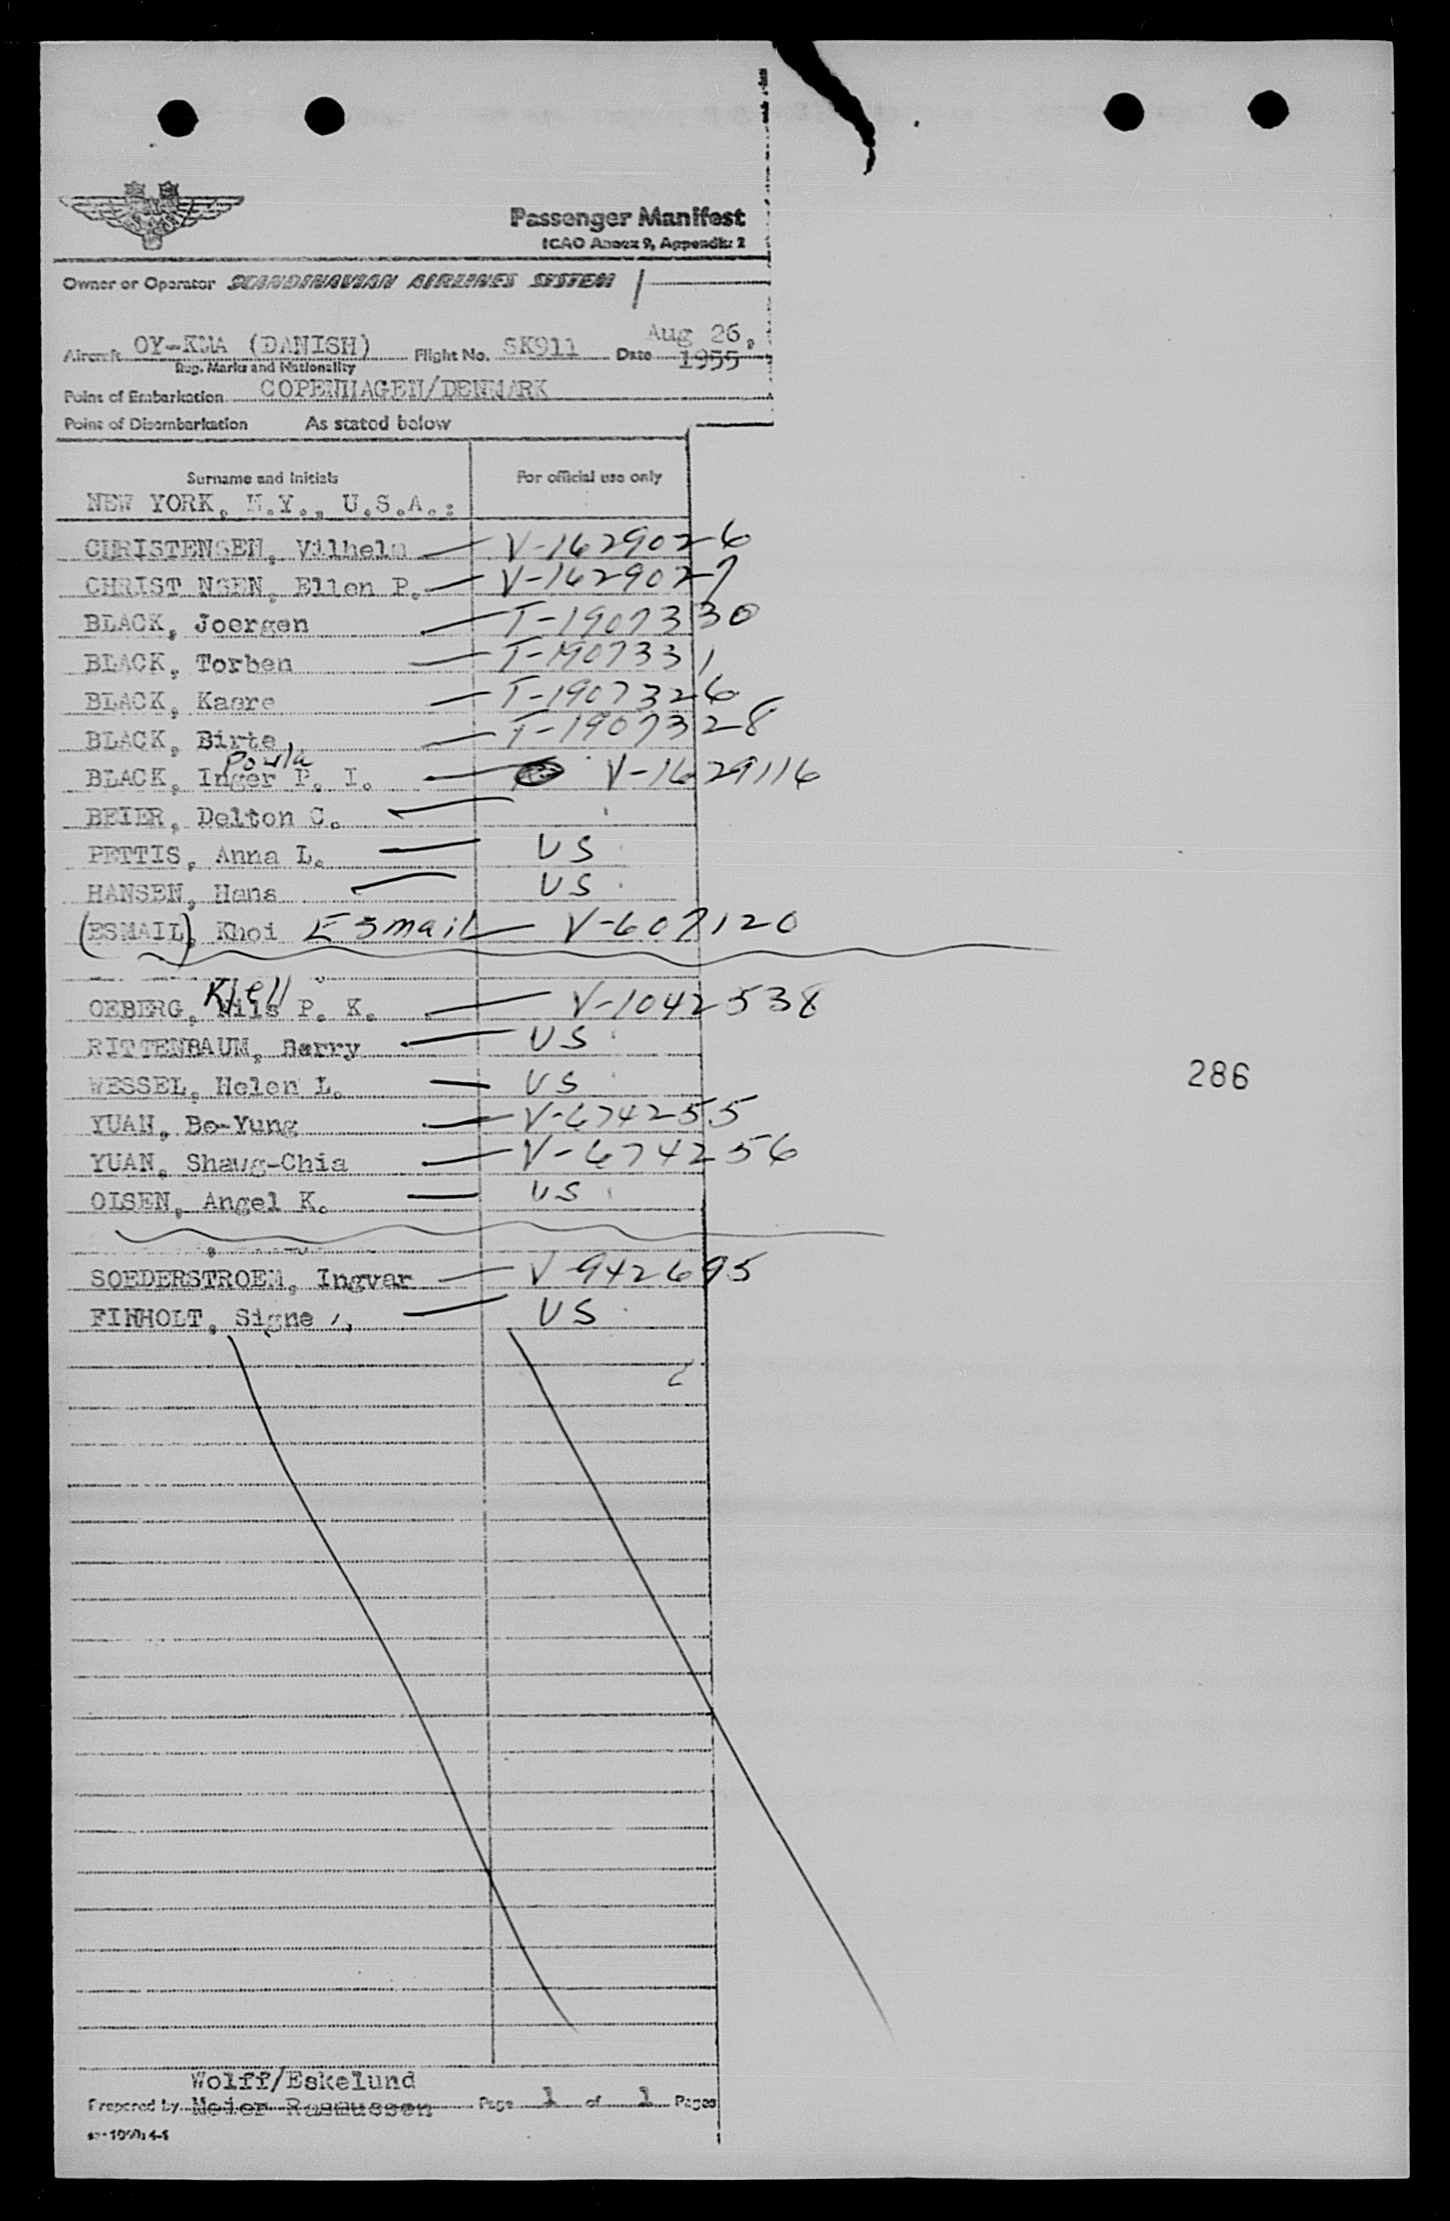 Passenger Manifest
ICAO Annex 9, Appendix 2
Owner or Operator SCANDINAVIAN AIRLINES SYSTEM
Aug 26,
Aircraft OY-KMA (DANISH) Flight No. SK911 Date 1955
Reg. Marks and Nationality
Point of Embarkation COPENHAGEN/DENMARK
Point of Disembarkation As stated below
Surname and Initials For official use only
NEW YORK, N.Y., U.S.A.:
CHRISTENSEN, Vilhelm V-1629026
CHRIST NSEN, Ellen P. V-1629027
BLACK, Joergen T-1907330
BLACK, Torben T-1907331
BLACK, Kaare T-1907326
BLACK, Birte T-1907328
Powla
BLACK, Inger P. I. V-1629116
BEIER, Delton C.
PETTIS, Anna L. US
HANSEN, Hans US
(ESMAIL), Khoi Esmail V-607120
Kjell
OEBERG, Nils P. K. V-1042538
RITTENBAUM, Barry US
WESSEL, Helen L. US
YUAN, Bo-Yung V-674255
YUAN, Shaug-Chia V-674256
OLSEN, Angel K. US
SOEDERSTROEM, Ingvar V-942695
FINHOLT, Signe US
286
Wolff/Eskelund
Prepared by Meier Rasmussen Page 1 of 1 Pages